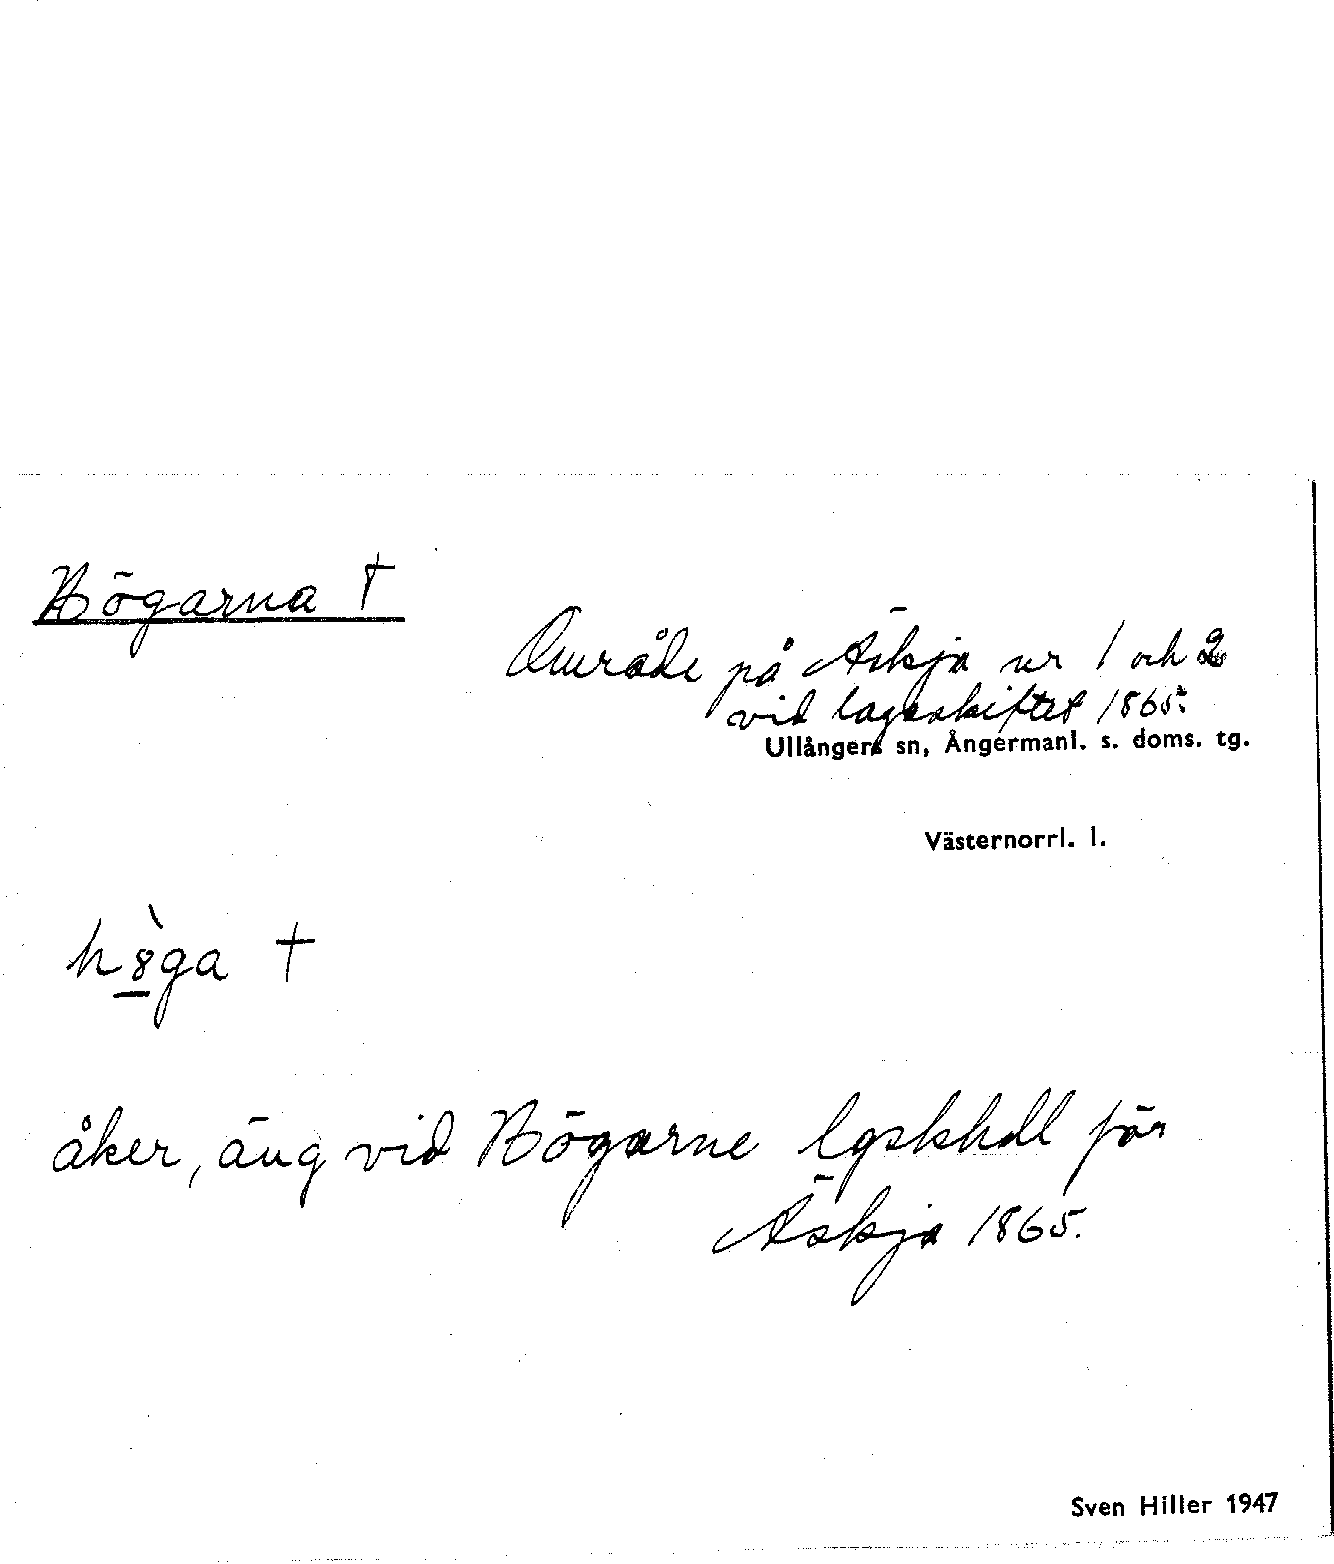 Högarna †
Område på Äskja nr 1 och 2
vid lagaskiftet 1865.
Ullångers sn, Ångermanl. s. doms. tg.
Västernorrl. l.
hö̀ga †
åker, äng vid Högarne lgskhdl för
Äskja 1865.
Sven Hiller 1947